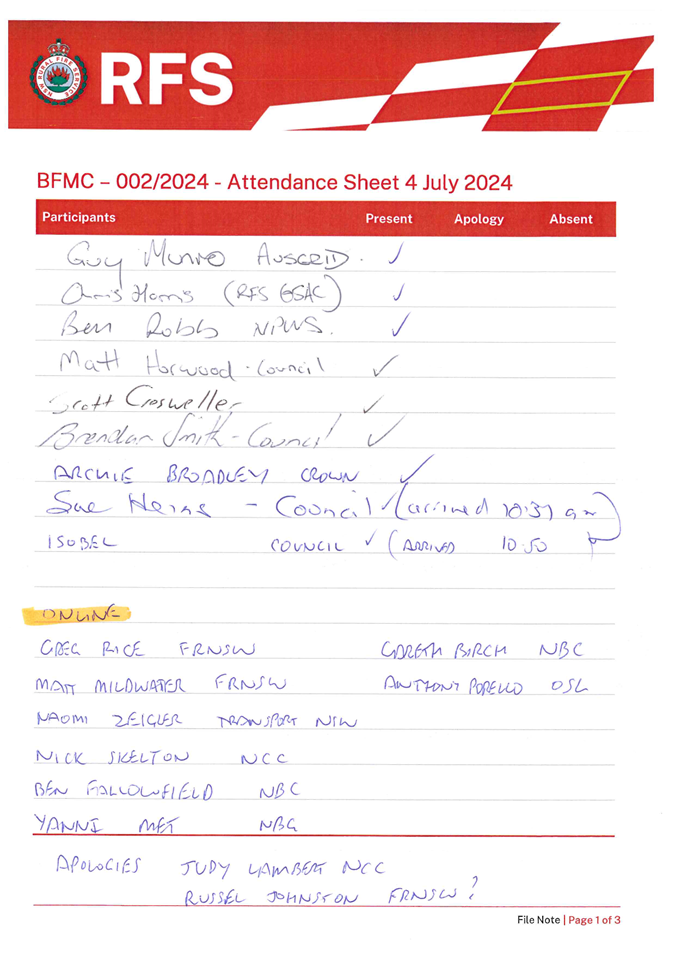 NSW RURAL FIRE SERVICE
RFS
BFMC – 002/2024 - Attendance Sheet 4 July 2024
Participants Present Apology Absent
Guy Munro AUSGRID. ✓
Chris Harris (RFS GSAC) ✓
Ben Robb NPWS. ✓
Matt Horwood - Council ✓
Scott Crosweller ✓
Brendan Smith - Council ✓
ARCHIE BROADLEY CROWN ✓
Sue Heins - Council ✓ (arrived 10:37 am)
ISOBEL COUNCIL ✓ (ARRIVED 10:50
ONLINE
GREG RICE FRNSW GARETH BIRCH NBC
MATT MILDWATER FRNSW ANTHONY PORELLO OSL
NAOMI ZEIGLER TRANSPORT NSW
NICK SKELTON NCC
BEN FALLOWFIELD NBC
YANNI MET NBC
APOLOGIES JUDY LAMBERT NCC
RUSSEL JOHNSTON FRNSW ?
File Note | Page 1 of 3